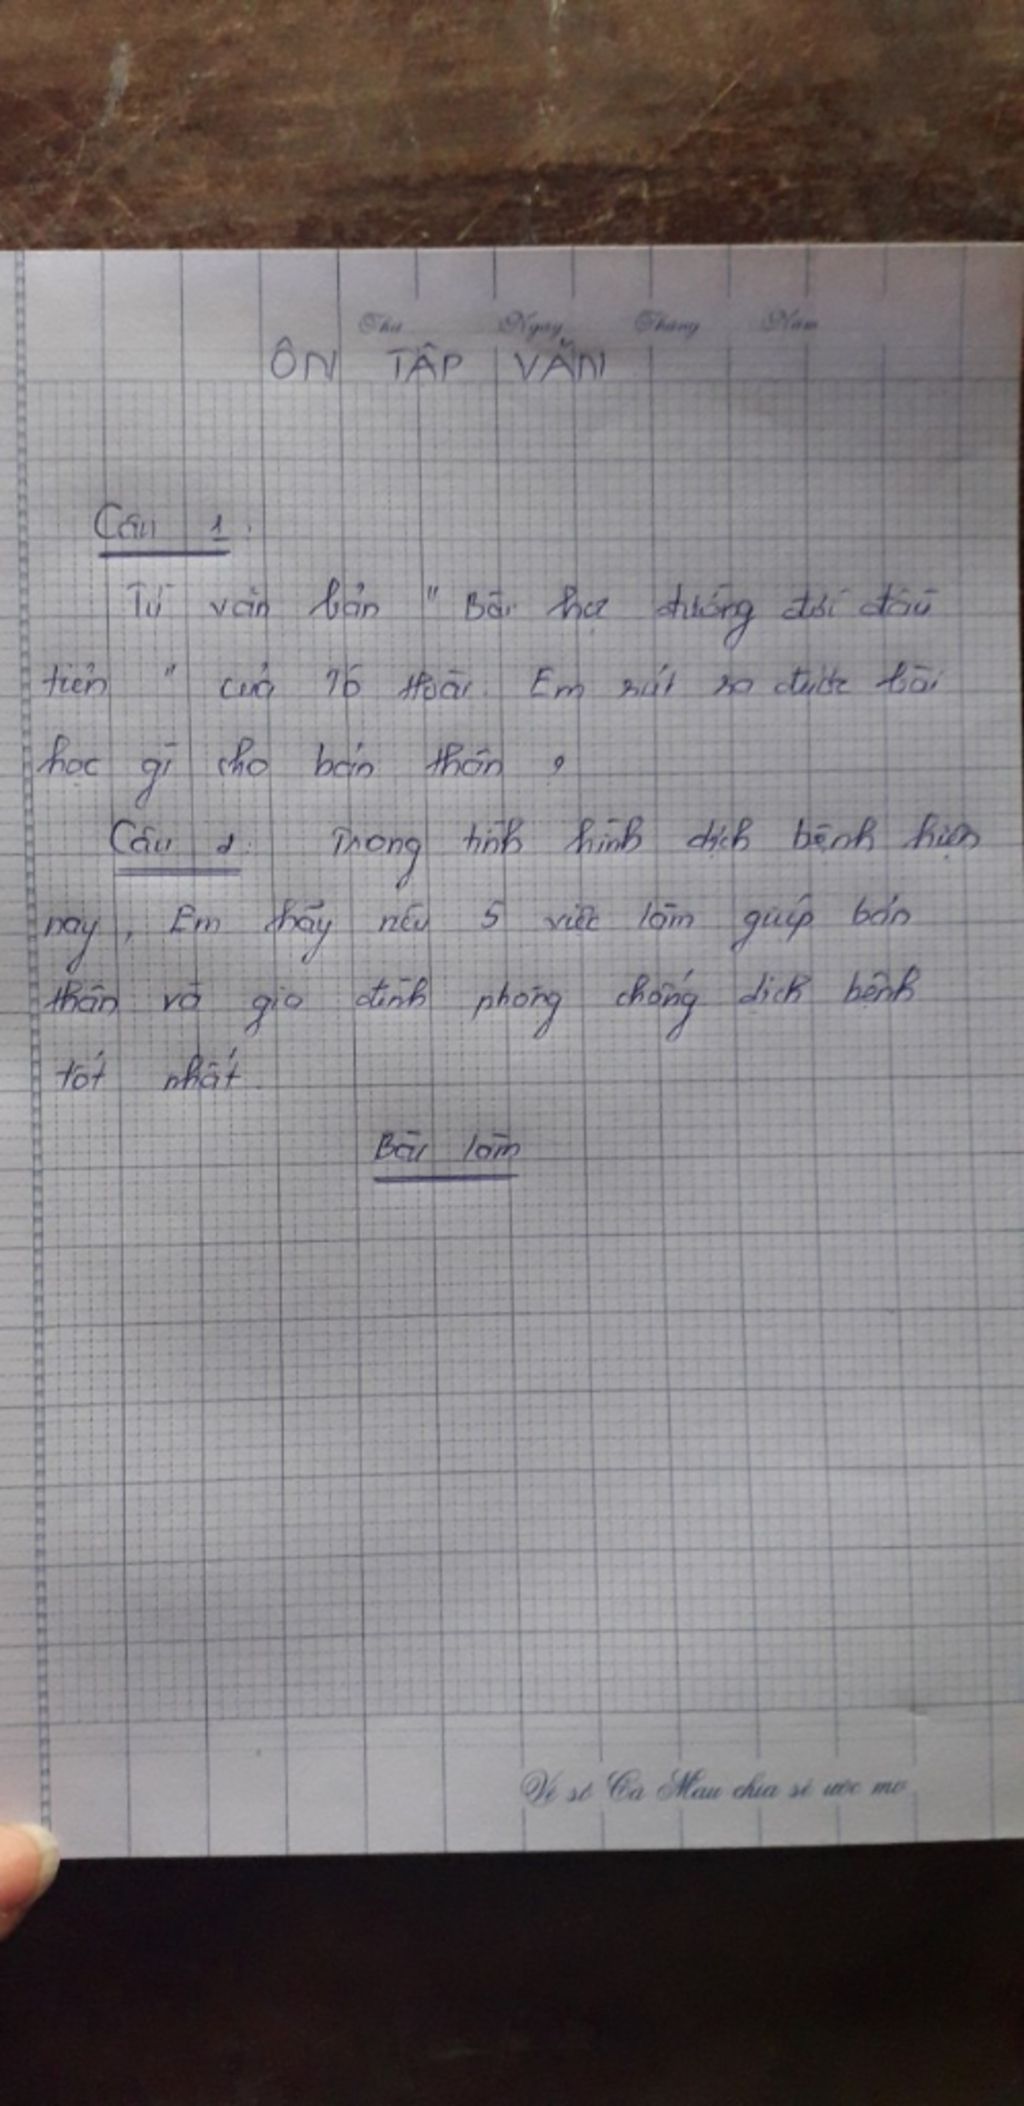 Thứ Ngày Tháng Năm
ÔN TẬP VĂN
Câu 1:
Từ văn bản " Bài học đường đời đầu
tiên " của Tô Hoài. Em rút ra được bài
học gì cho bản thân ?
Câu 2: Trong tình hình dịch bệnh hiện
nay, Em hãy nêu 5 việc làm giúp bản
thân và gia đình phòng chống dịch bệnh
tốt nhất.
Bài làm
Vé số Cà Mau chia sẻ ước mơ